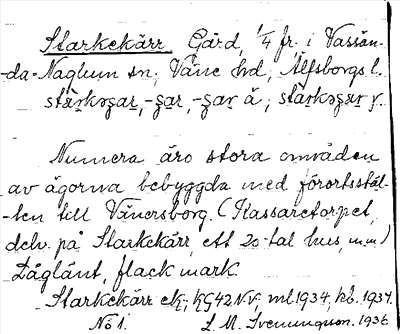 Starkekärr. Gård, 1/4 fr. i Vassän-
-da-Naglum sn, Väne hd, Älfsborgs l.
Numera äro stora områden
av ägorna bebyggda med förortsstäl-
-len till Vänersborg. (Klassaretorpet,
delv. på Starkekärr, ett 20-tal hus, m.m)
Låglänt, flack mark.
Starkekärr ek; kG42NV, ml1934, kb. 1934.
No 1. L. M. Svenungson. 1936